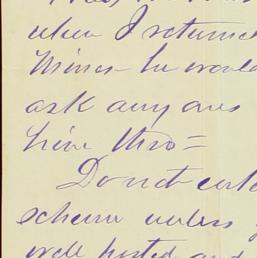 when I returned
Mines - he would
ask any ones
him thro =
Do not
scheme unless
well posted and